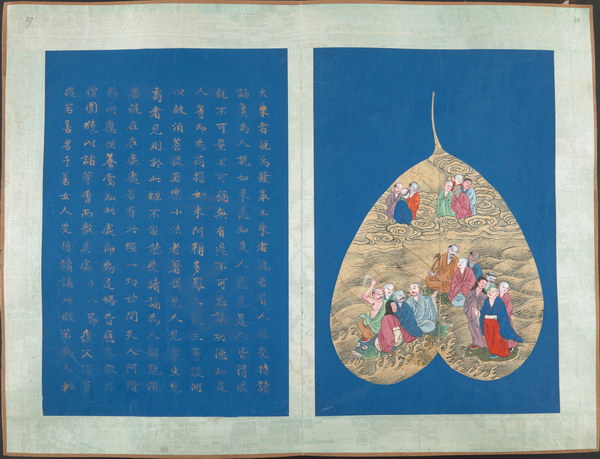 大乘者說為發最上乘者說若有人能受持讀
誦廣為人說如來悉知是人悉見是人皆得成
就不可量不可稱無有邊不可思議功德如是
人等即為荷擔如來阿耨多羅三藐三菩提何
以故須菩提若樂小法者著我見人見眾生見
壽者見則於此經不能聽受讀誦為人解說須
菩提在在處處若有此經一切世間天人阿修
羅所應供養當知此處即為是塔皆應恭敬作
禮圍繞以諸華香而散其處復次須菩
提若善男子善女人受持讀誦此經若為人輕